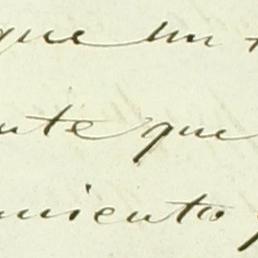 que un
nte que
miento